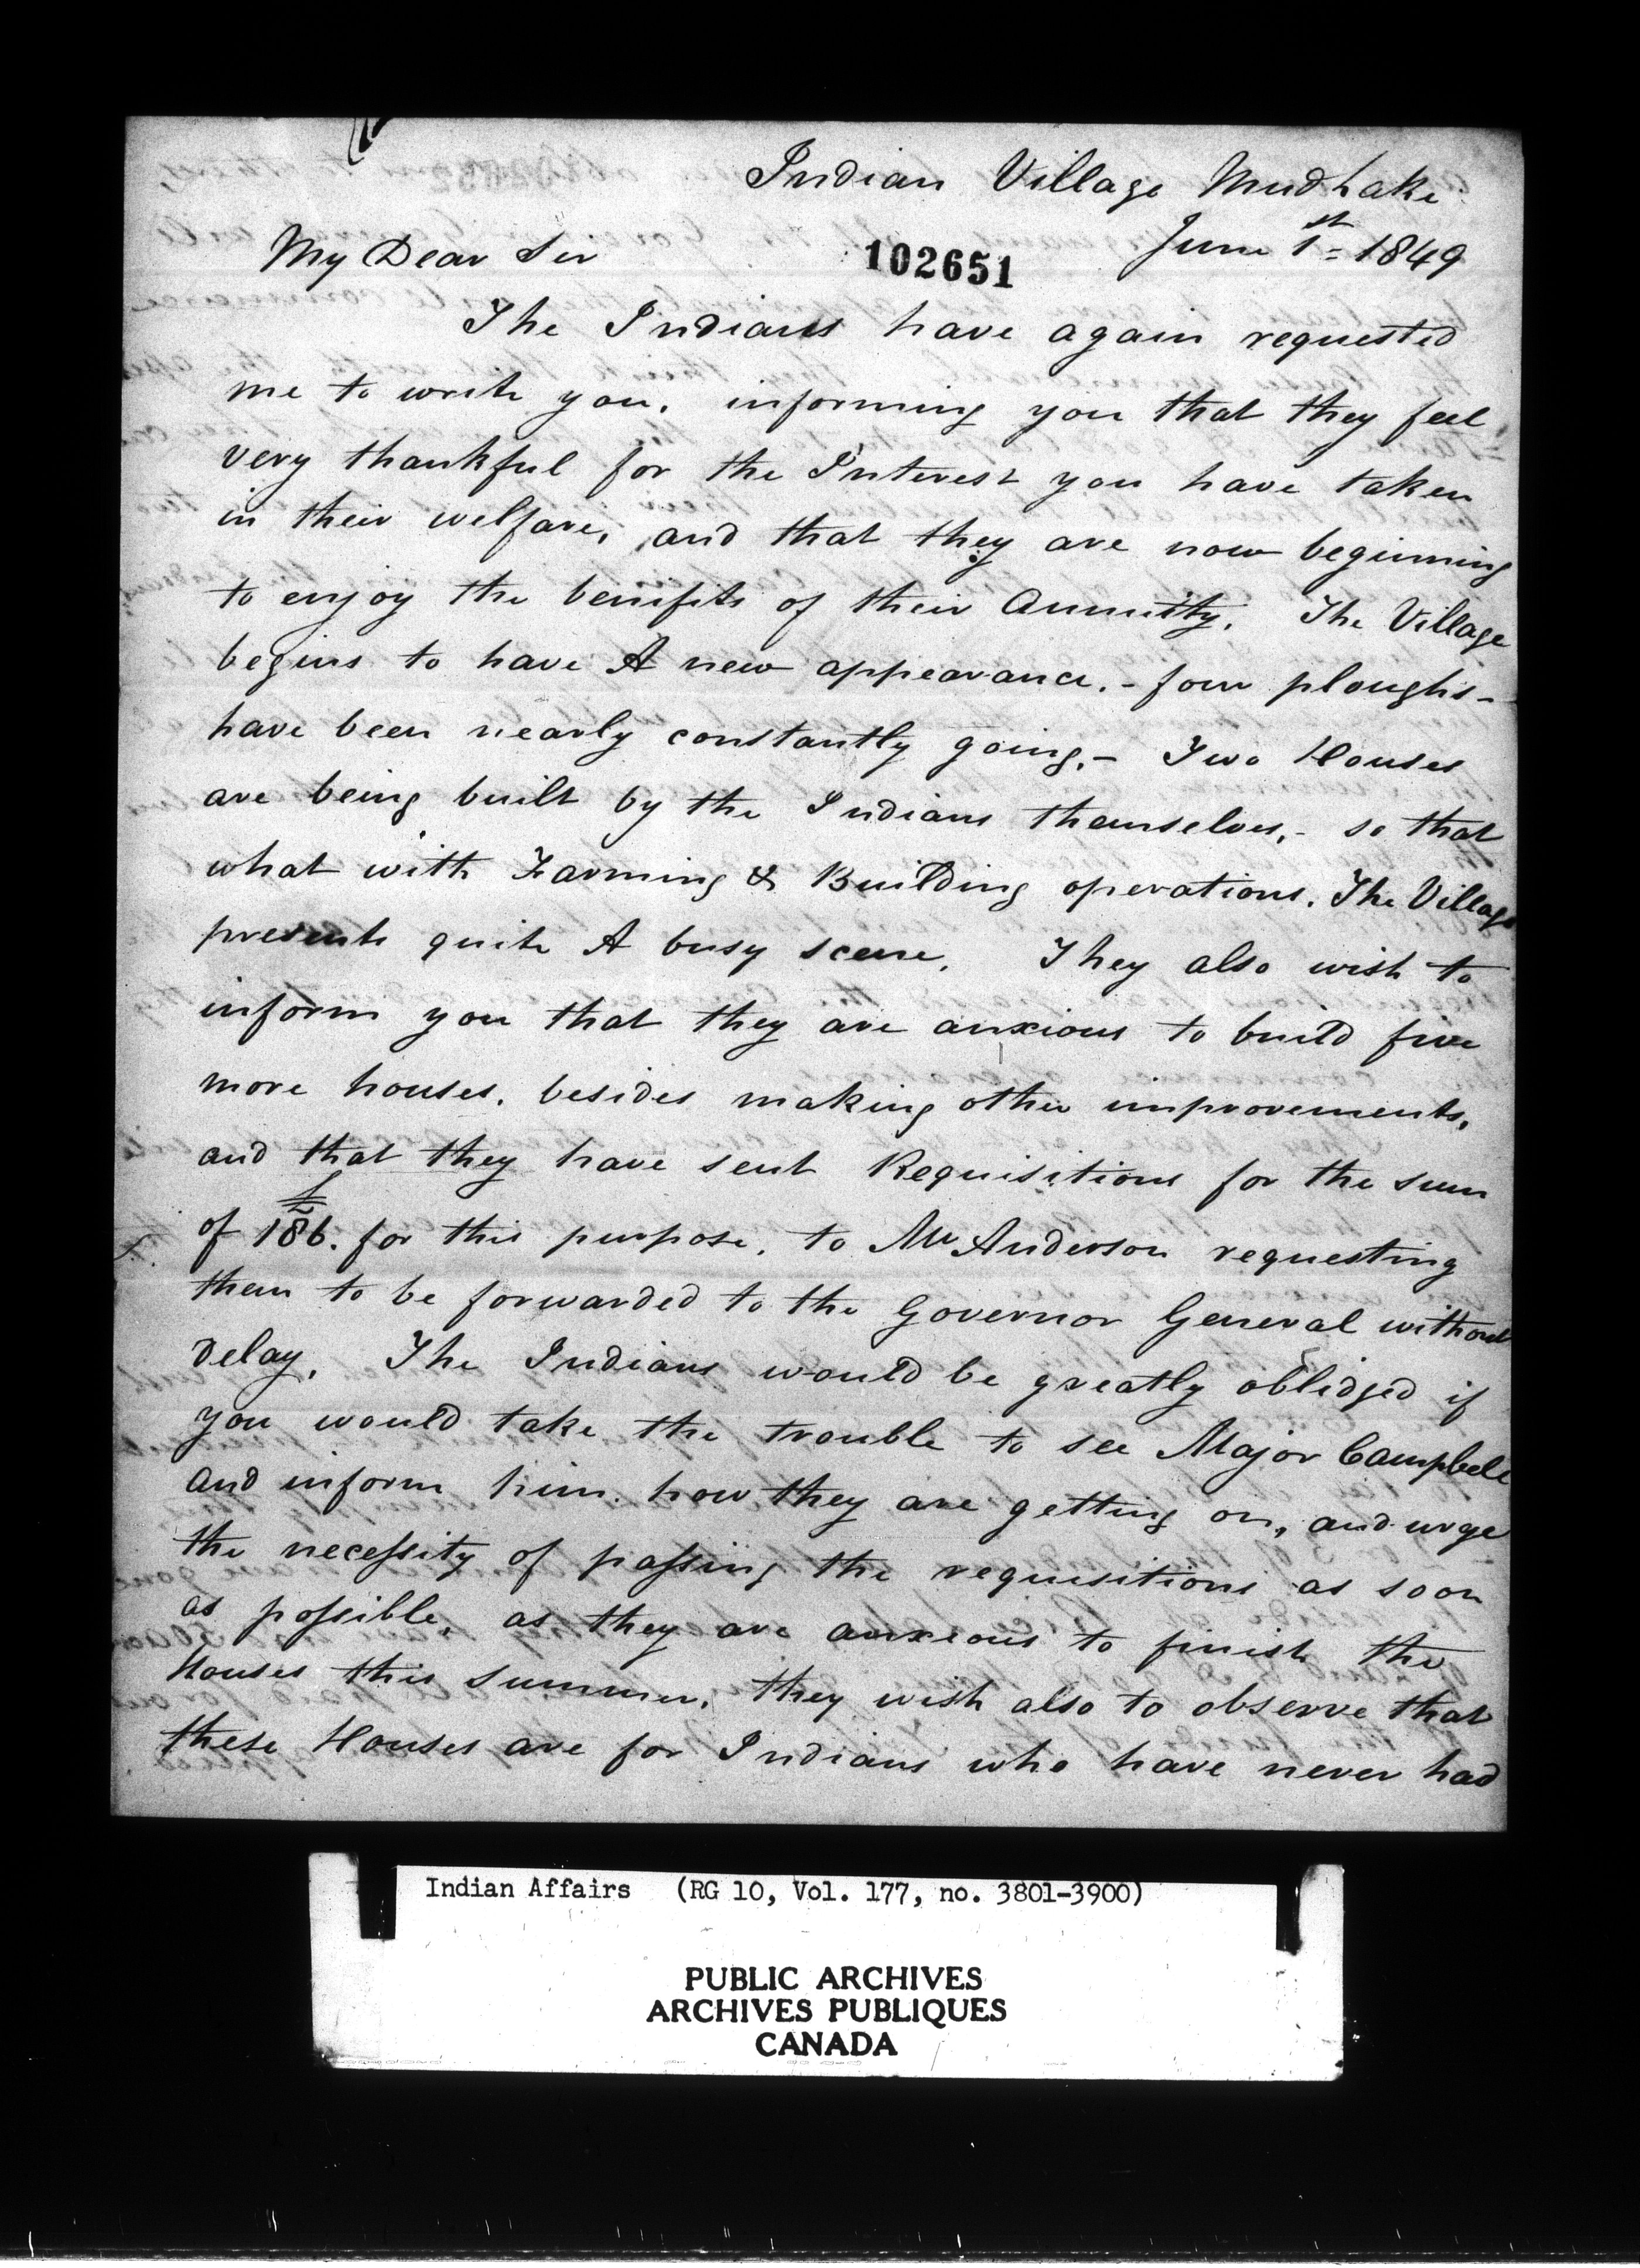 Indian Village Mud Lake
June 1st = 1849
My Dear Sir
102651
The Indians have again requested
me to write you, informing you that they feel
very thankful for the Interest you have taken
in their welfare, and that they are now beginning
to enjoy the benifits of their Annuity. The Village
begins to have A new appearance. - four ploughs -
have been nearly constantly going. - Two Houses
are being built by the Indians themselves, - so that
what with Farming & Building operations. The Village
presents quite A busy scene. They also wish to
inform you that they are anxious to build five
more houses, besides making other improvements,
and that they have sent Requisitions for the sum
of £186. for this purpose, to Mr Anderson requesting
them to be forwarded to the Governor General without
delay. The Indians would be greatly oblidged if
you would take the trouble to see Major Campbell
and inform him how they are getting on, and urge
the necessity of passing the requisitions as soon
as possible, as they are anxeous to finish the
Houses this summer, they wish also to observe that
these Houses are for Indians who have never had
Indian Affairs (RG 10, Vol. 177, no. 3801-3900)
PUBLIC ARCHIVES
ARCHIVES PUBLIQUES
CANADA